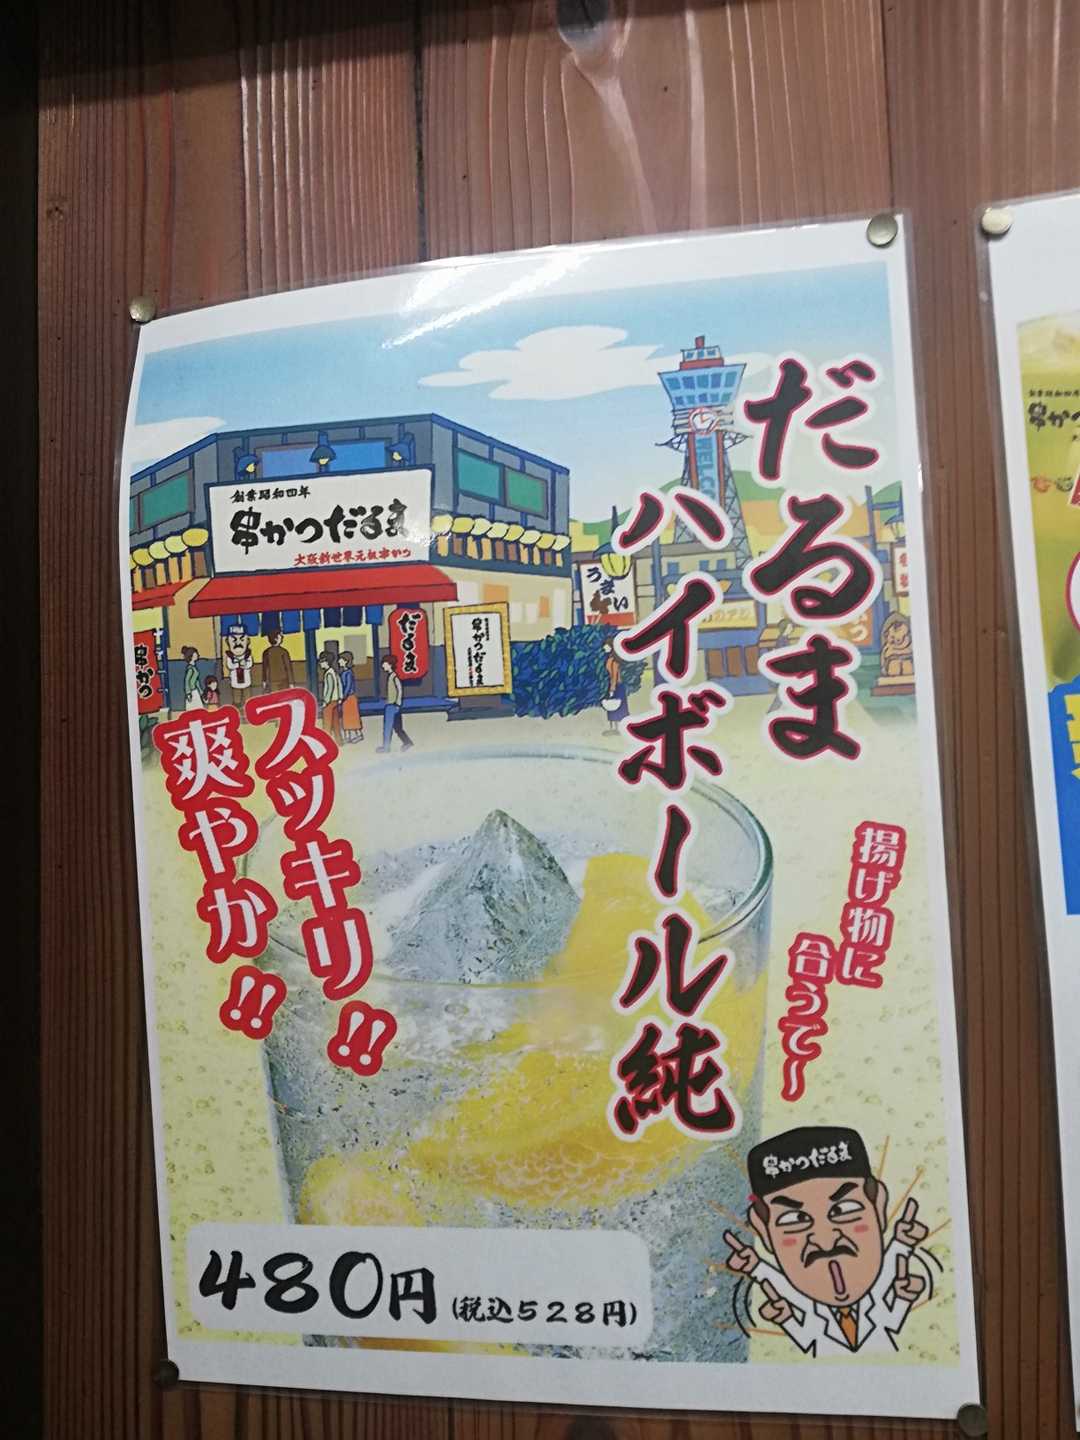 だるま
ハイボール純
揚げ物に
合うて〜
スッキリ!!
爽やか!!
創業昭和四年
串かつだるま
大阪新世界元祖串かつ
だるま
串かつだるま
うまい
串かつ
WELCO
串かつだるま
480円
(税込528円)
創業昭和四
串かつ